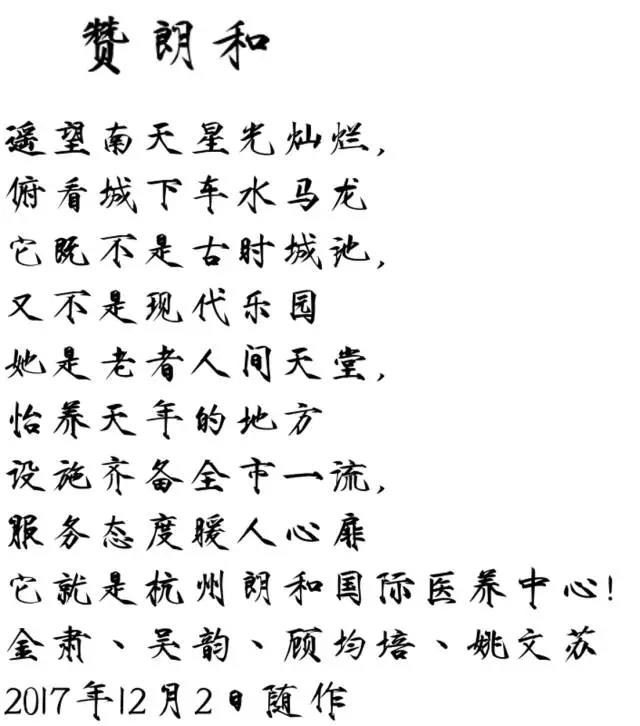 赞朗和
遥望南天星光灿烂,
俯看城下车水马龙
它既不是古时城池,
又不是现代乐园
她是老者人间天堂,
怡养天年的地方
设施齐备全市一流,
服务态度暖人心扉
它就是杭州朗和国际医养中心!
金肃、吴韵、顾均培、姚文苏
2017年12月2日随作